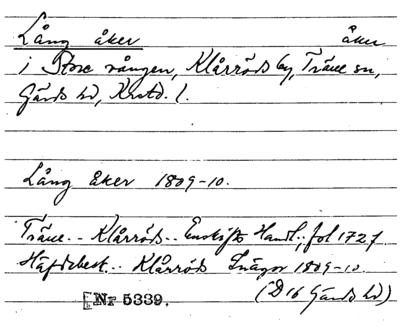 Lång åker åker
i Store vången, Klårröds by, Träne sn,
Gärds hd, Krstd. l.
Lång åker 1809-10.
Träne.. Klårröds.. Enskifts Handl.; fol 1727
Häfdebest.. Klårröds Inägor 1809-10.
(D16 Gärds hd)
[Nr 5339.